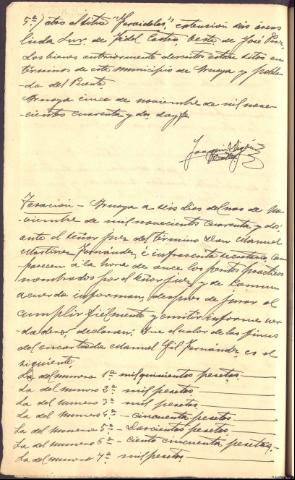 5ª) otra al sitio "", extension dos areas
linda Sur de Fidel Castro, Oeste de José
Los bienes anteriormente descritos estan sitos en
términos de este municipio de Amoya y
de Puente.
Amoya cinco de noviembre de mil nove-
cientos cuarenta y dos doy fe
Joaquin
Tasación - Amoya a diez dias del mes de No-
viembre de mil novecientos cuarenta y dos
ante el señor juez del término Don Manuel
Martinez Fernández, e infrascrito secretario com-
parecen a la hora de once los peritos practicos
nombrados por el señor juez y de comun
acuerdo informan, despues de jurar el
cumplir fielmente y emitir informe ver-
dadero: declaran: Que el valor de las fincas
del encartado Manuel Gil Fernández es el
siguiente
La del numero 1ª mil quinientas pesetas
La del numero 2ª mil pesetas
La del numero 3ª mil pesetas
La del numero 4ª - cincuenta pesetas
La del numero 5ª - Doscientas pesetas
La del numero 6ª - ciento cincuenta pesetas,-
La del numero 7ª mil pesetas